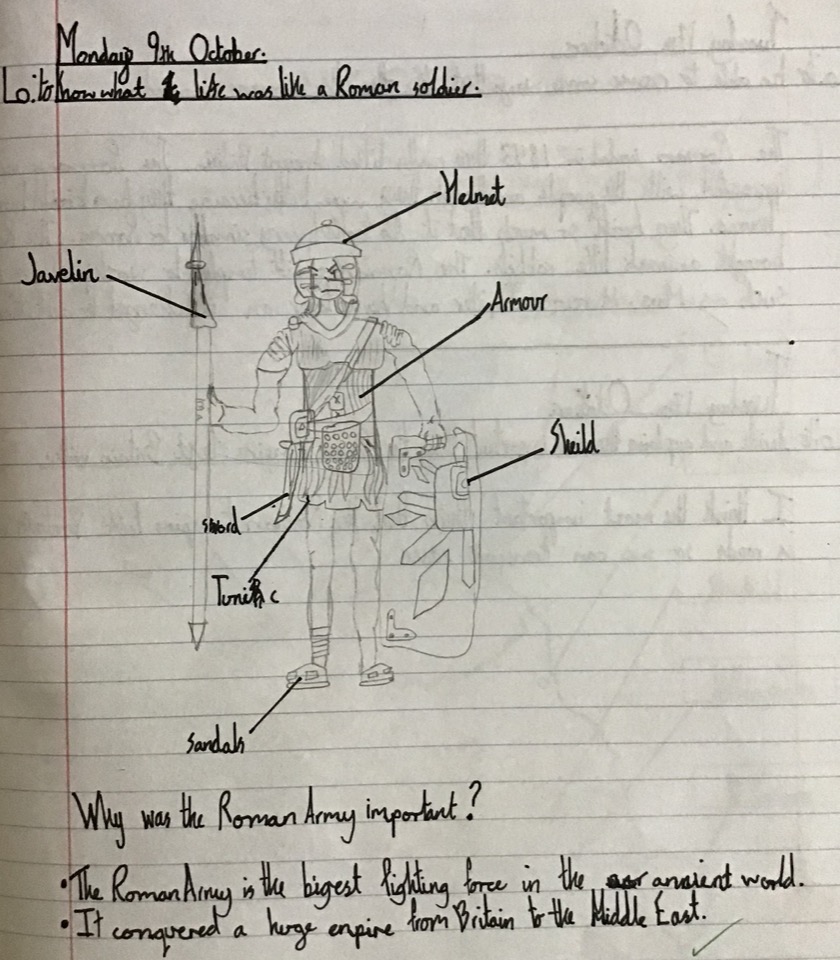 Monday 9th October.
Lo: to know what life was like a Roman soldier.
Helmet
Javelin
Armour
Sheild
sword
Tunic
Sandals
Why was the Roman Army important?
• The Roman Army is the biggest fighting force in the anaient world.
• It conquered a huge enpire from Britain to the Middle East.